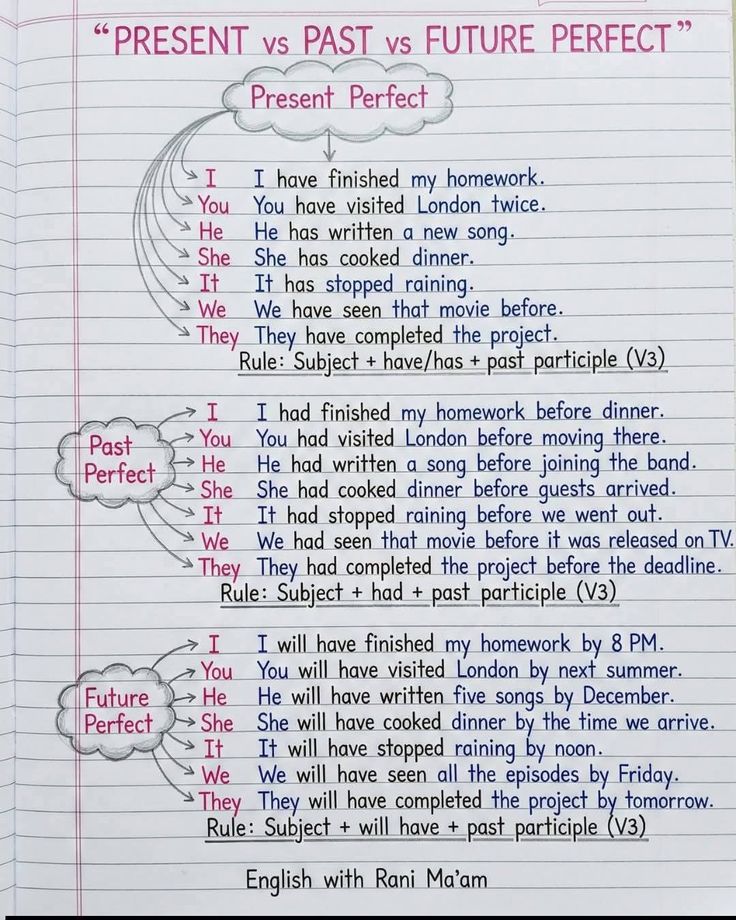 “PRESENT vs PAST vs FUTURE PERFECT”
Present Perfect
I I have finished my homework.
You You have visited London twice.
He He has written a new song.
She She has cooked dinner.
It It has stopped raining.
We We have seen that movie before.
They They have completed the project.
Rule: Subject + have/has + past participle (V3)
Past
Perfect
I I had finished my homework before dinner.
You You had visited London before moving there.
He He had written a song before joining the band.
She She had cooked dinner before guests arrived.
It It had stopped raining before we went out.
We We had seen that movie before it was released on TV.
They They had completed the project before the deadline.
Rule: Subject + had + past participle (V3)
Future
Perfect
I I will have finished my homework by 8 PM.
You You will have visited London by next summer.
He He will have written five songs by December.
She She will have cooked dinner by the time we arrive.
It It will have stopped raining by noon.
We We will have seen all the episodes by Friday.
They They will have completed the project by tomorrow.
Rule: Subject + will have + past participle (V3)
English with Rani Ma’am